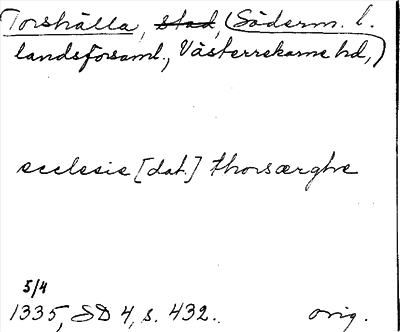 Torshälla, stad, (Söderm. l.
landsförsaml., Västerrekarne hd,)
ecclesie [dat.] thorsærghre
5/4
1335, SD 4, s. 432. orig.